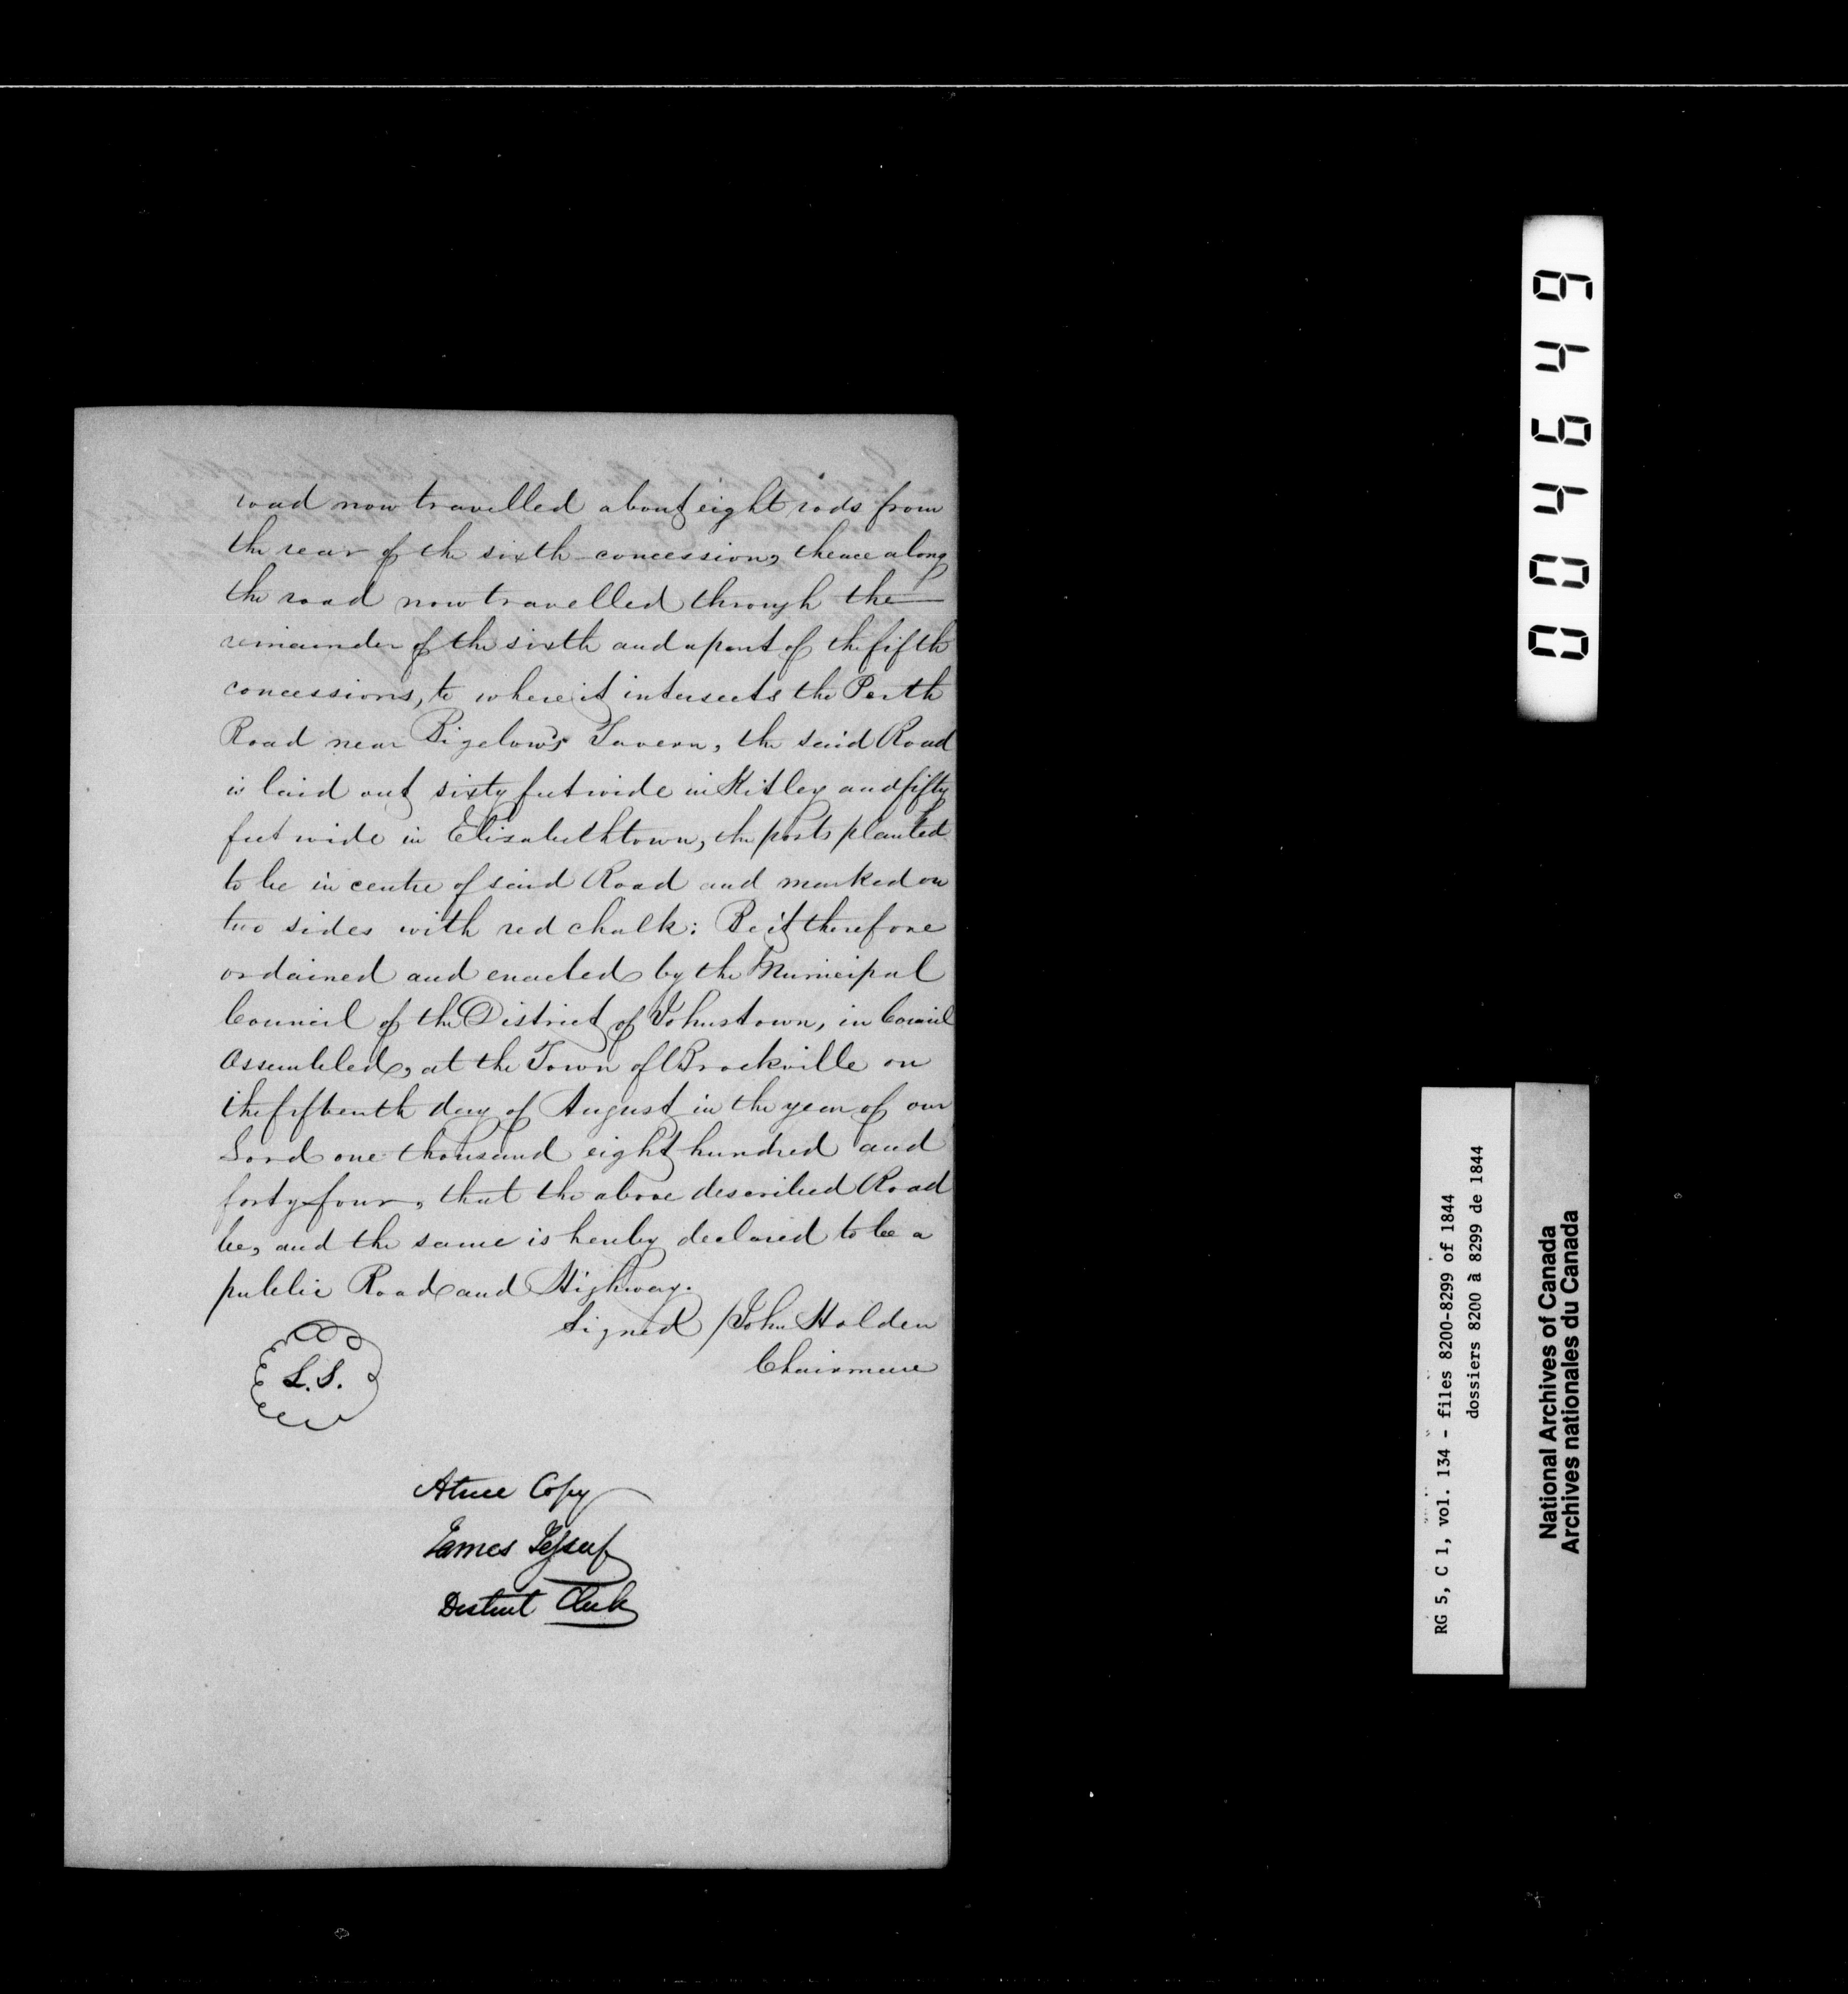 road now travelled about eight rods from
the rear of the sixth concession, thence along
the road now travelled through the
remainder of the sixth and a part of the fifth
concessions, to where it intersects the Perth
Road near Bigelow's Tavern, the said Road
is laid out sixty feet wide in Kitley and fifty
feet wide in Elizabethtown, the posts planted
to be in centre of said Road and marked on
two sides with red chalk: Be it therefore
ordained and enacted by the Municipal
Council of the District of Johnstown, in Council
Assembled, at the Town of Brockville on
the fifteenth day of August in the year of our
Lord one thousand eight hundred and
forty four, that the above described Road
be, and the same is hereby declared to be a
public Road and Highway.
Signed / John Holden
Chairman
L.S.
A true Copy
James Jessup
District Clerk
004649
RG 5, C 1, vol. 134 - files 8200-8299 of 1844
dossiers 8200 à 8299 de 1844
National Archives of Canada
Archives nationales du Canada